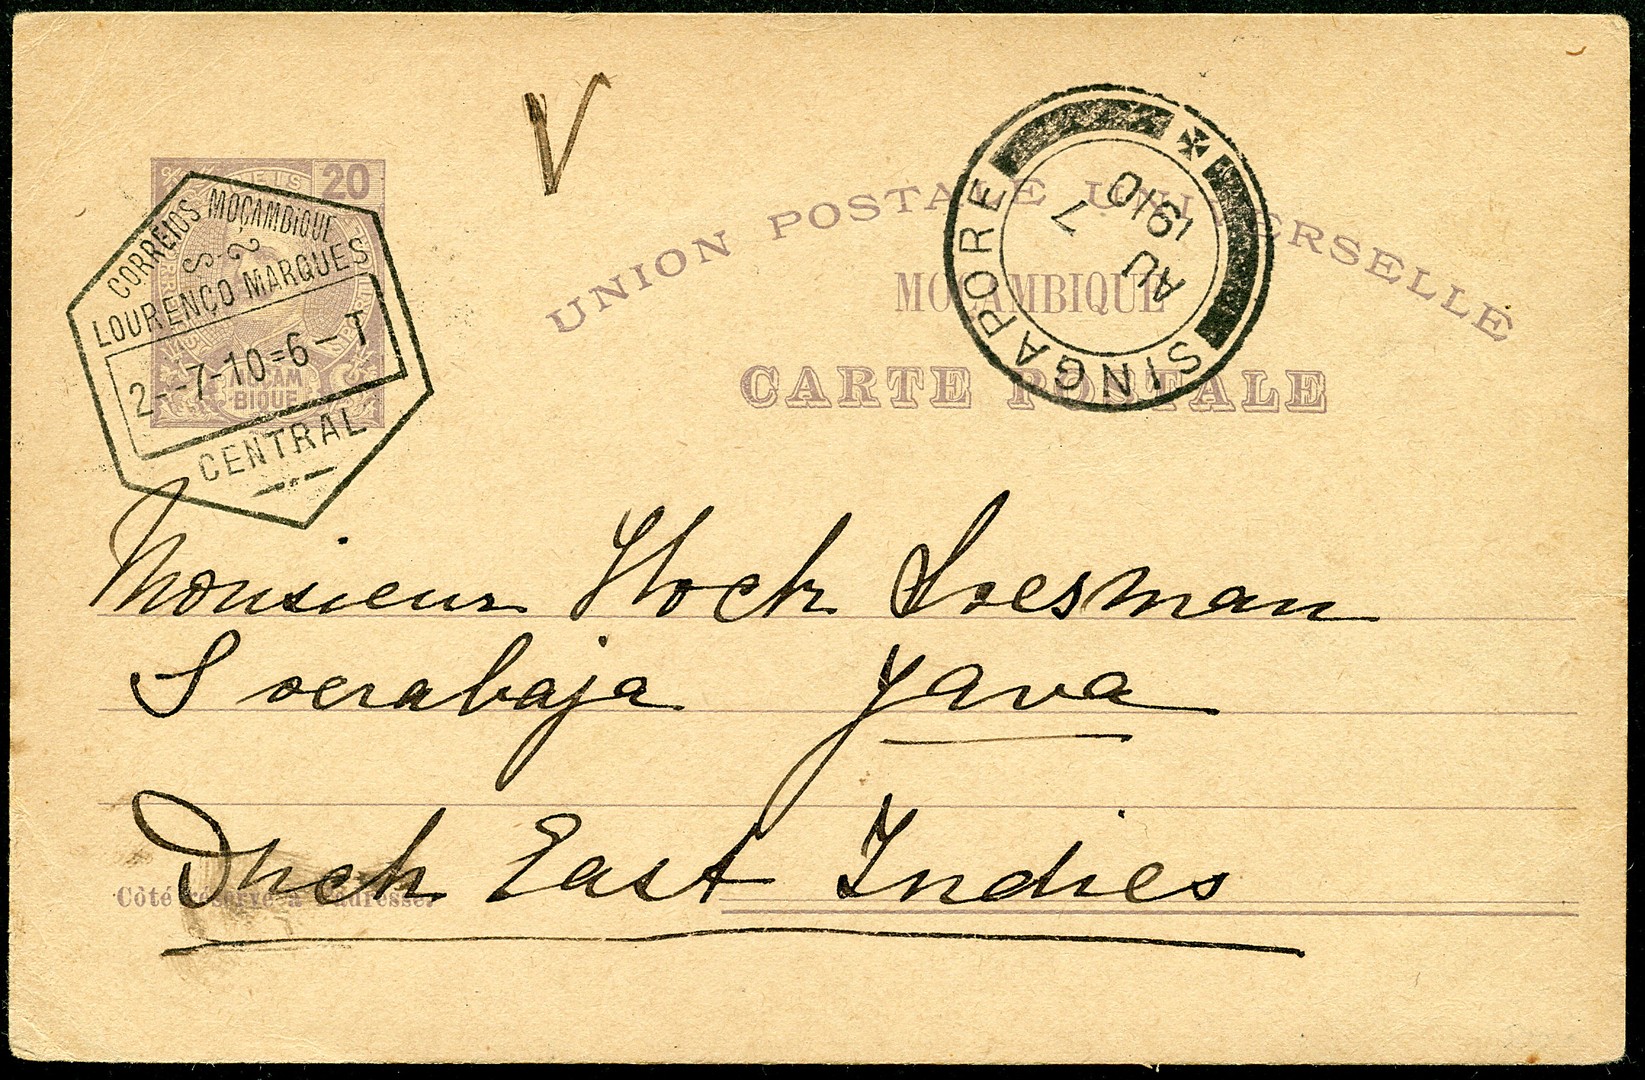 20
REIS
CORREIOS MOÇAMBIQUE
LOURENÇO MARQUES
2-7-10=6-T
CENTRAL
MOÇAM
BIQUE
V
UNION POSTALE UNIVERSELLE
MOÇAMBIQUE
CARTE POSTALE
SINGAPORE
AU
7
1910
Monsieur Hock Soesman
Soerabaja Java
Dtch East Indies
Côté réservé à l'adresse.